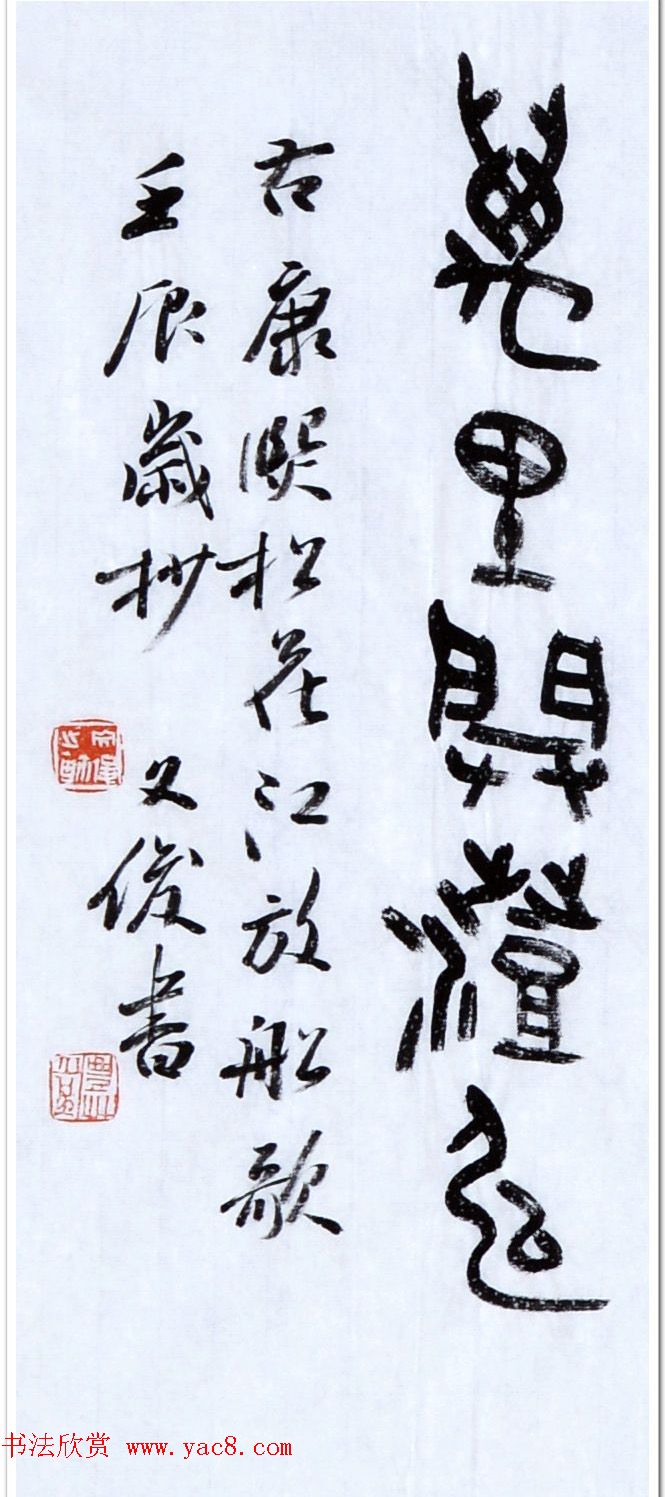 萬里開澄泓
右康熙松花江放船歌
壬辰歲杪 文俊書
书法欣赏 www.yac8.com